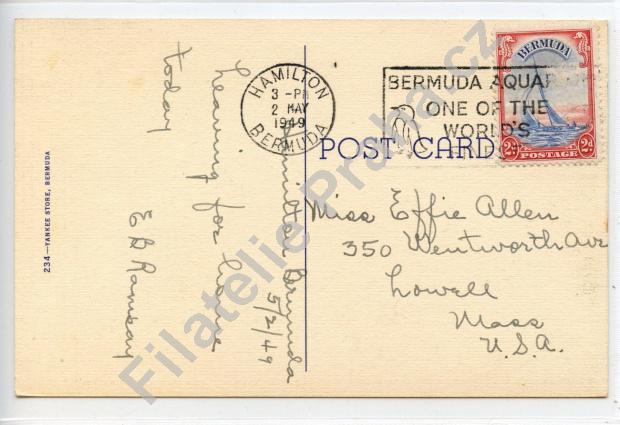 HAMILTON
3 - PM
2 MAY
1949
BERMUDA
BERMUDA AQUAR
ONE OF THE
WORLD'S
BERMUDA
2d POSTAGE 2d
POST CARD
Hamilton Bermuda
5/2/49
Leaving for home
today
E B Ramsay
Miss Effie Allen
350 Wentworth Ave
Lowell
Mass
U.S.A.
234—YANKEE STORE, BERMUDA
Filatelie Praha.cz